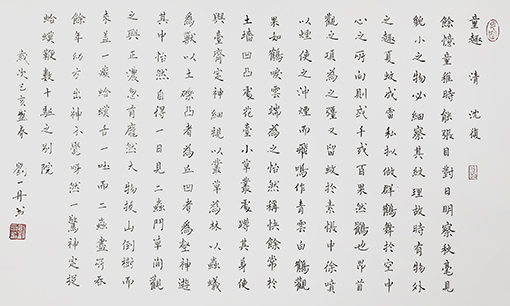 童趣 清 沈復
餘憶童稚時餘張目對日明察秋毫見
藐小之物必細察其紋理故時有物外
之趣夏蚊成雷私擬做群鶴舞於空中
心之所向則或千或百果然鶴也昂首
觀之項為之彊又留蚊於素帳中徐噴
以煙使之沖煙而飛鳴作青雲白鶴觀
果如鶴唳雲端為之怡然稱快餘常於
土墻凹凸處花臺小草叢處蹲其身使
與臺齊定神細視以叢草為林以蟲蟻
為獸以土礫凸者為丘凹者為壑神遊
其中怡然自得一日見二蟲鬥草間觀
之興正濃忽有龐然大物拔山倒樹而
來蓋一癩蛤蟆舌一吐而二蟲盡所吞
餘年幼方出神不覺呀然一驚神定捉
蛤蟆鞭數十驅之別院
歲次己亥春 劉一丹書